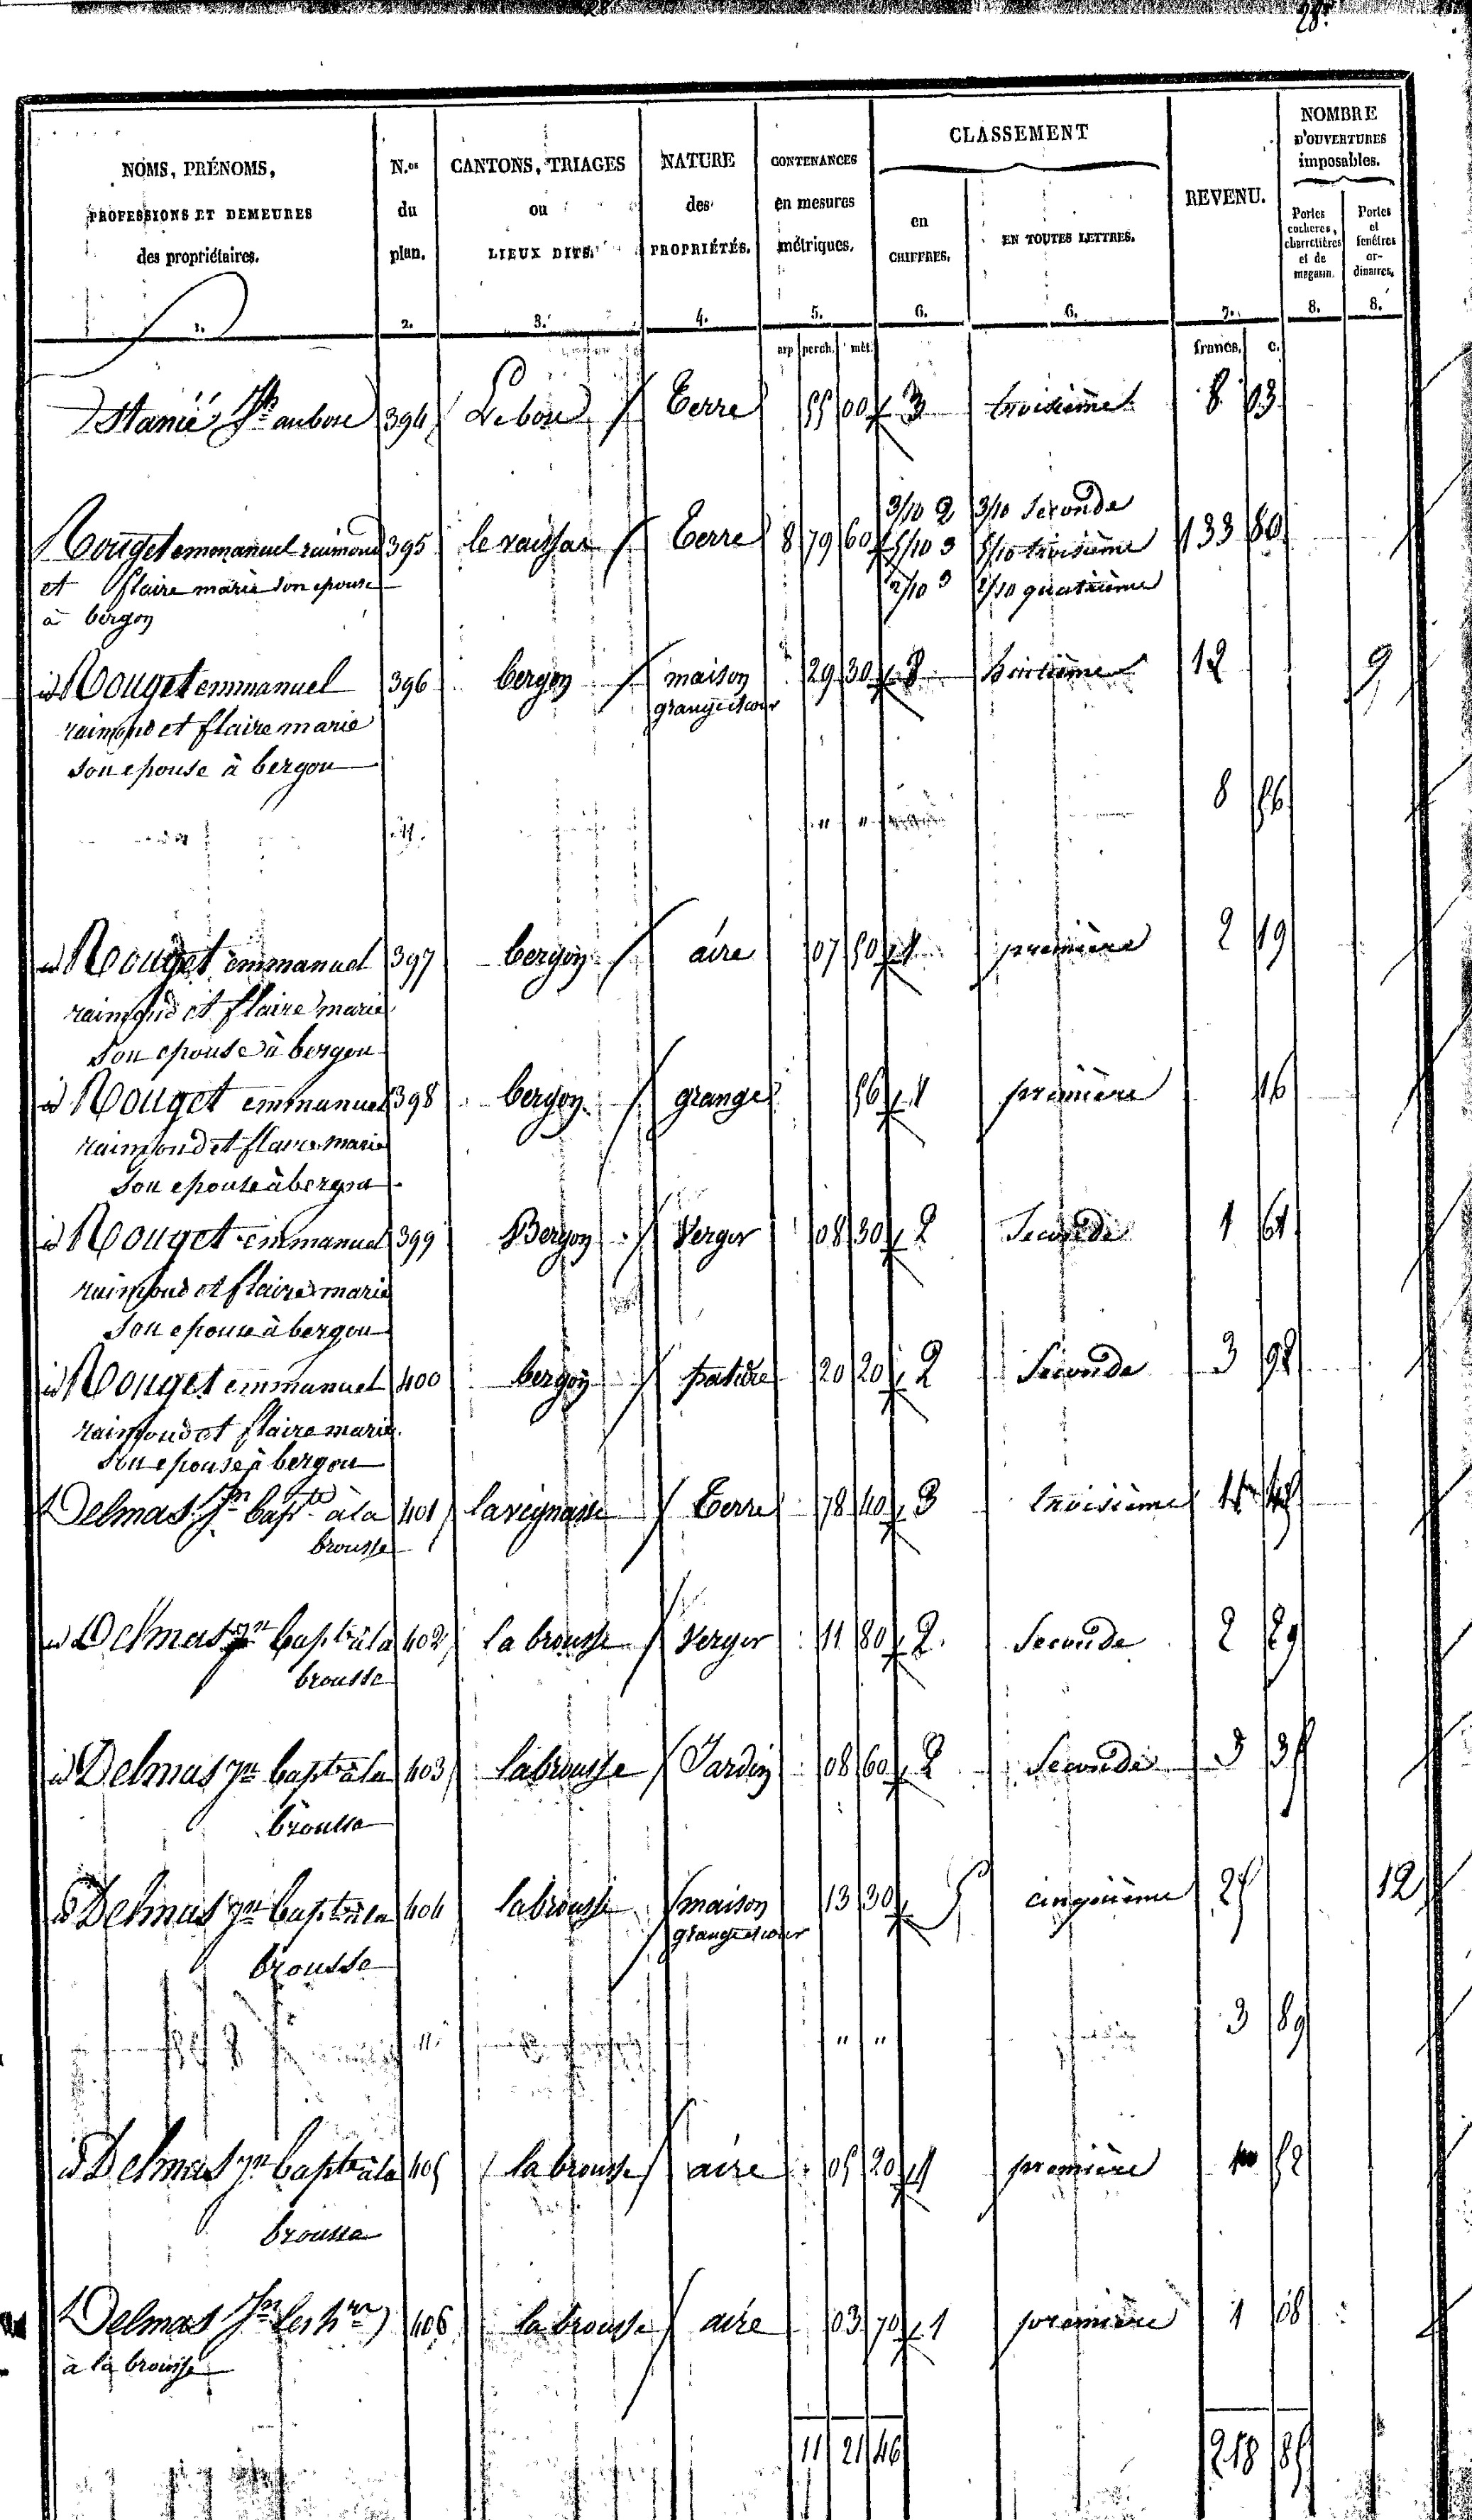 28
28.
NOMS, PRÉNOMS, PROFESSIONS ET DEMEURES des propriétaires.
N.os du plan.
CANTONS, TRIAGES ou LIEUX DITS.
NATURE des PROPRIÉTÉS.
CONTENANCES en mesures métriques.
CLASSEMENT
en CHIFFRES.
EN TOUTES LETTRES.
REVENU.
NOMBRE D'OUVERTURES imposables.
Portes cocheres, charretières et de magasin.
Portes et fenêtres ordinaires.
1. 2. 3. 4. 5. 6. 6. 7. 8. 8.
arp perch. mèt. francs. c.
394 Terre 55 00 3 troisième 8
3/10 2 3/10 Seconde
Rouget emmanuel raimond 395 Terre 8 79 60 5/10 3 5/10 troisième 133 80
et flaire marie son epouse 2/10 2/10 quatrième
à bergon
id Rouget emmanuel 396 bergon maison 29 30 12 9
grange et cour
raimond et flaire marie
son epouse à bergon
8 56
" "
id Rouget emmanuel 397 bergon aire 07 50 1 première 2 19
raimond et flaire marie
son epouse à bergon
id Rouget emmanuel 398 bergon grange 56 1 première 16
raimond et flaire marie
son epouse à bergon
id Rouget emmanuel 399 Bergon Verger 08 30 2 Seconde 1 61
raimond et flaire marie
son epouse à bergon
id Rouget emmanuel 400 bergon patûre 20 20 2 Seconde 3 92
raimond et flaire marie
son epouse à bergon
Delmas Jn bapte à la 401 Terre 78 40 3 troisième
brousse
id Delmas Jn bapte à la 402 la brousse Verger 11 80 2 Seconde 2 29
brousse
id Delmas Jn bapte à la 403 labrousse Jardin 08 60 2 Seconde 3 35
brousse
id Delmas Jn bapte à la 404 labrousse maison 13 30 5 cinquième 25 12
grange et cour
brousse
" " " 3 89
id Delmas Jn bapte à la 405 la brousse aire 05 20 1 première 52
brousse
Delmas Jn les hrs 406 la brousse aire 03 70 1 première 1 08
à la brousse
11 21 46 218 85